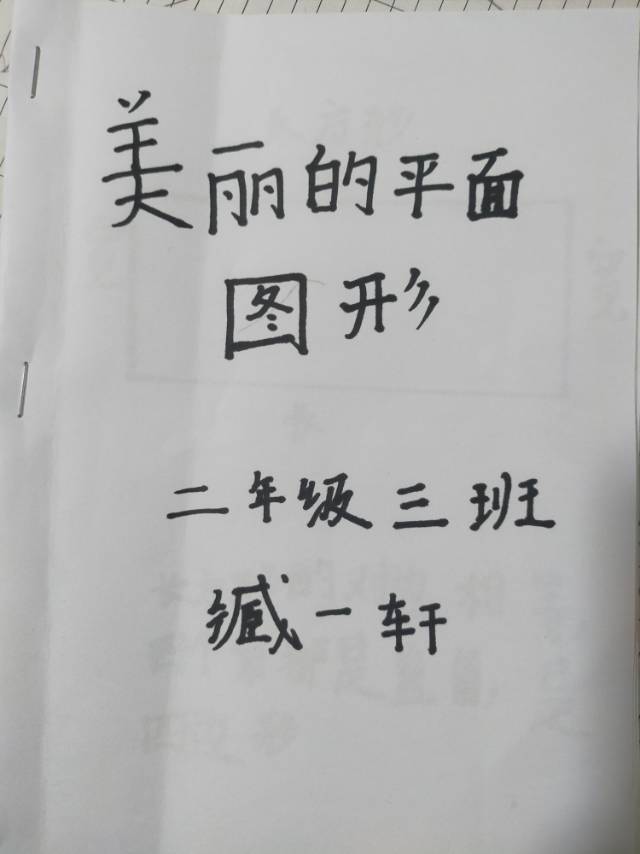 美丽的平面
图形
二年级三班
臧一轩